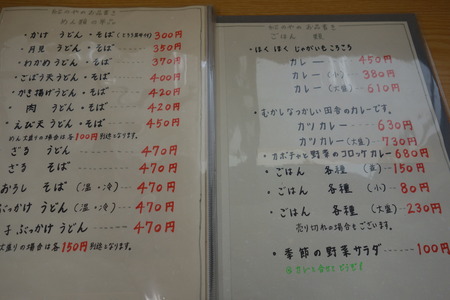 めん類の単品
・かけ うどん・そば 300円
・月見 うどん・そば 350円
・わかめうどん・そば 370円
・ごぼう天うどん・そば 400円
・かき揚げうどん・そば 420円
・肉 うどん・そば 420円
・えび天うどん・そば 450円
めん大盛りの場合は各100円別途となります。
ざる うどん 470円
ざる そば 470円
おろし そば (温・冷) 470円
ぶっかけ うどん (温・冷) 470円
子ぶっかけ うどん 470円
大盛りの場合は各150円別途となります。
ごはん 類
・ほくほくじゃがいもごろごろ
カレー 450円
カレー (小) 380円
カレー (大盛) 610円
・むかしなつかしい田舎のカレーです。
カツカレー 630円
カツカレー (大盛) 730円
・カボチャと野菜のコロッケカレー 680円
・ごはん 各種 150円
・ごはん 各種 (小) 80円
・ごはん 各種 (大盛) 230円
売り切れの場合もございます。
・季節の野菜サラダ 100円